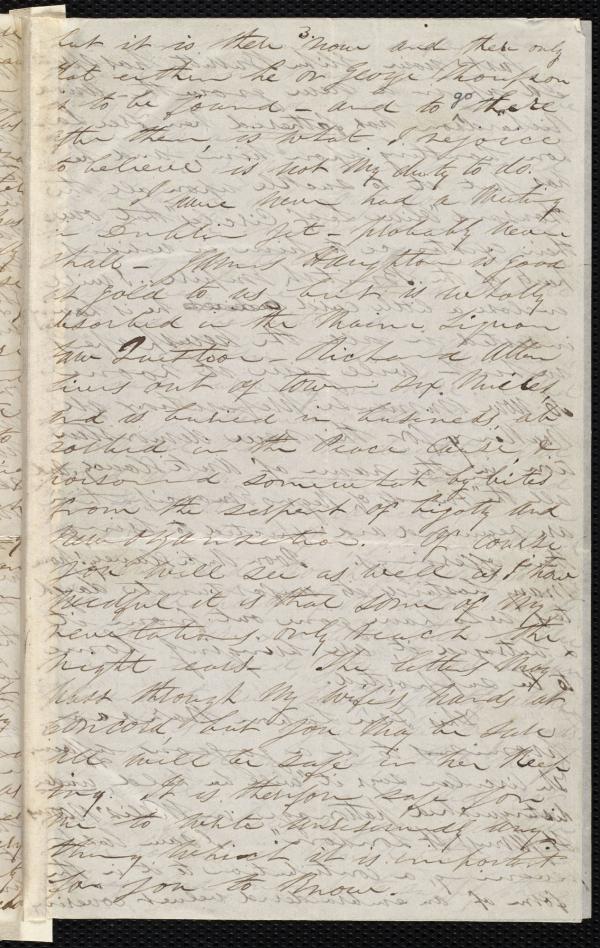 3.
but it is there now and then only
that either he or George Thompson
is to be found – and to go there
after them, is what I rejoice
to believe is not my duty to do.
I have never had a meeting
in Dublin yet – probably never
shall – James Haughton is good
as gold to us but is wholly
absorbed in the Maine Liquor
Law Question – Richard Allen
lives out of town six miles,
and is buried in business, ab
sorbed in the Peace Cause, &
poisoned somewhat by bites
from the serpent of bigotry and
new organization. Of course
you will see as well as I how
needful it is that some of my
revelations only reach the
right ears. The letters may
pass through my wife's hands at
Concord, but you may be sure
all will be safe in her keep
ing. It is therefore safe for
me to write unreservedly any
thing which it is important
for you to know.